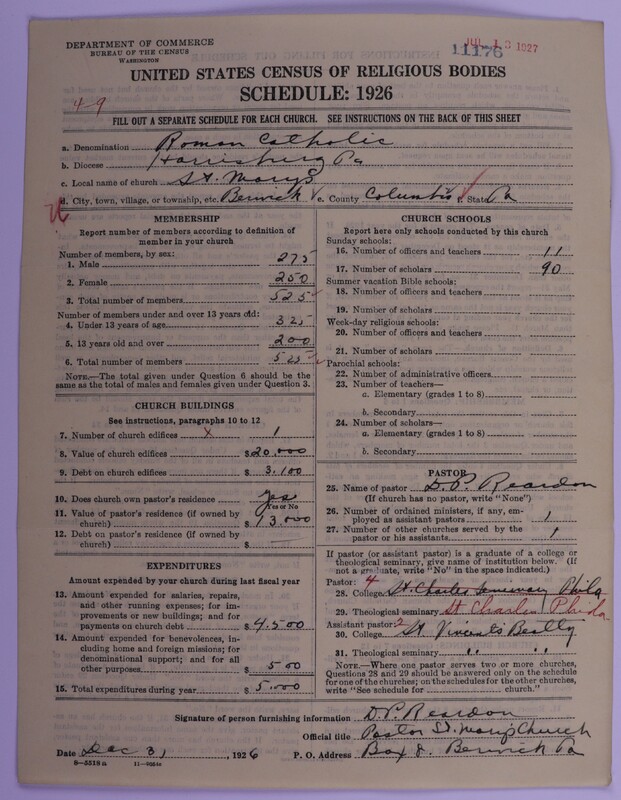 DEPARTMENT OF COMMERCE
BUREAU OF THE CENSUS
WASHINGTON
11176
JUL 13 1927
UNITED STATES CENSUS OF RELIGIOUS BODIES
SCHEDULE: 1926
4-9
FILL OUT A SEPARATE SCHEDULE FOR EACH CHURCH. SEE INSTRUCTIONS ON THE BACK OF THIS SHEET
a. Denomination Roman Catholic
b. Diocese Harrisburg Pa
c. Local name of church St. Marys
d. City, town, village, or township, etc. Berwick e. County Columbia f. State Pa
MEMBERSHIP
Report number of members according to definition of
member in your church
Number of members, by sex:
1. Male 275
2. Female 250
3. Total number of members 525
Number of members under and over 13 years old:
4. Under 13 years of age 325
5. 13 years old and over 200
6. Total number of members 525
NOTE.—The total given under Question 6 should be the
same as the total of males and females given under Question 3.
CHURCH BUILDINGS
See instructions, paragraphs 10 to 12
7. Number of church edifices x 1
8. Value of church edifices $20.000
9. Debt on church edifices $3.100
10. Does church own pastor's residence yes
Yes or No
11. Value of pastor's residence (if owned by
church) $13.000
12. Debt on pastor's residence (if owned by
church) $
EXPENDITURES
Amount expended by your church during last fiscal year
13. Amount expended for salaries, repairs,
and other running expenses; for im-
provements or new buildings; and for
payments on church debt $4.500
14. Amount expended for benevolences, in-
cluding home and foreign missions; for
denominational support; and for all
other purposes $500
15. Total expenditures during year $5.000
CHURCH SCHOOLS
Report here only schools conducted by this church
Sunday schools:
16. Number of officers and teachers 11
17. Number of scholars 90
Summer vacation Bible schools:
18. Number of officers and teachers
19. Number of scholars
Week-day religious schools:
20. Number of officers and teachers
21. Number of scholars
Parochial schools:
22. Number of administrative officers
23. Number of teachers—
a. Elementary (grades 1 to 8)
b. Secondary
24. Number of scholars—
a. Elementary (grades 1 to 8)
b. Secondary
PASTOR
25. Name of pastor D.P. Reardon
(If church has no pastor, write "None")
26. Number of ordained ministers, if any, em-
ployed as assistant pastors 1
27. Number of other churches served by the
pastor or his assistants 1
If pastor (or assistant pastor) is a graduate of a college or
theological seminary, give name of institution below. (If
not a graduate, write "No" in the space indicated.)
Pastor: 4
28. College St. Charles Seminary Phila
29. Theological seminary St Charles Phida
Assistant pastor: 2
30. College St Vincents Beatty
31. Theological seminary " "
NOTE.—Where one pastor serves two or more churches,
Questions 28 and 29 should be answered only on the schedule
for one of the churches; on the schedules for the other churches,
write "See schedule for church."
Signature of person furnishing information D.P. Reardon
Official title Pastor St. Marys Church
Date Dec 31, 1926 P. O. Address Box J. Berwick Pa
8—5518a 11—9054a